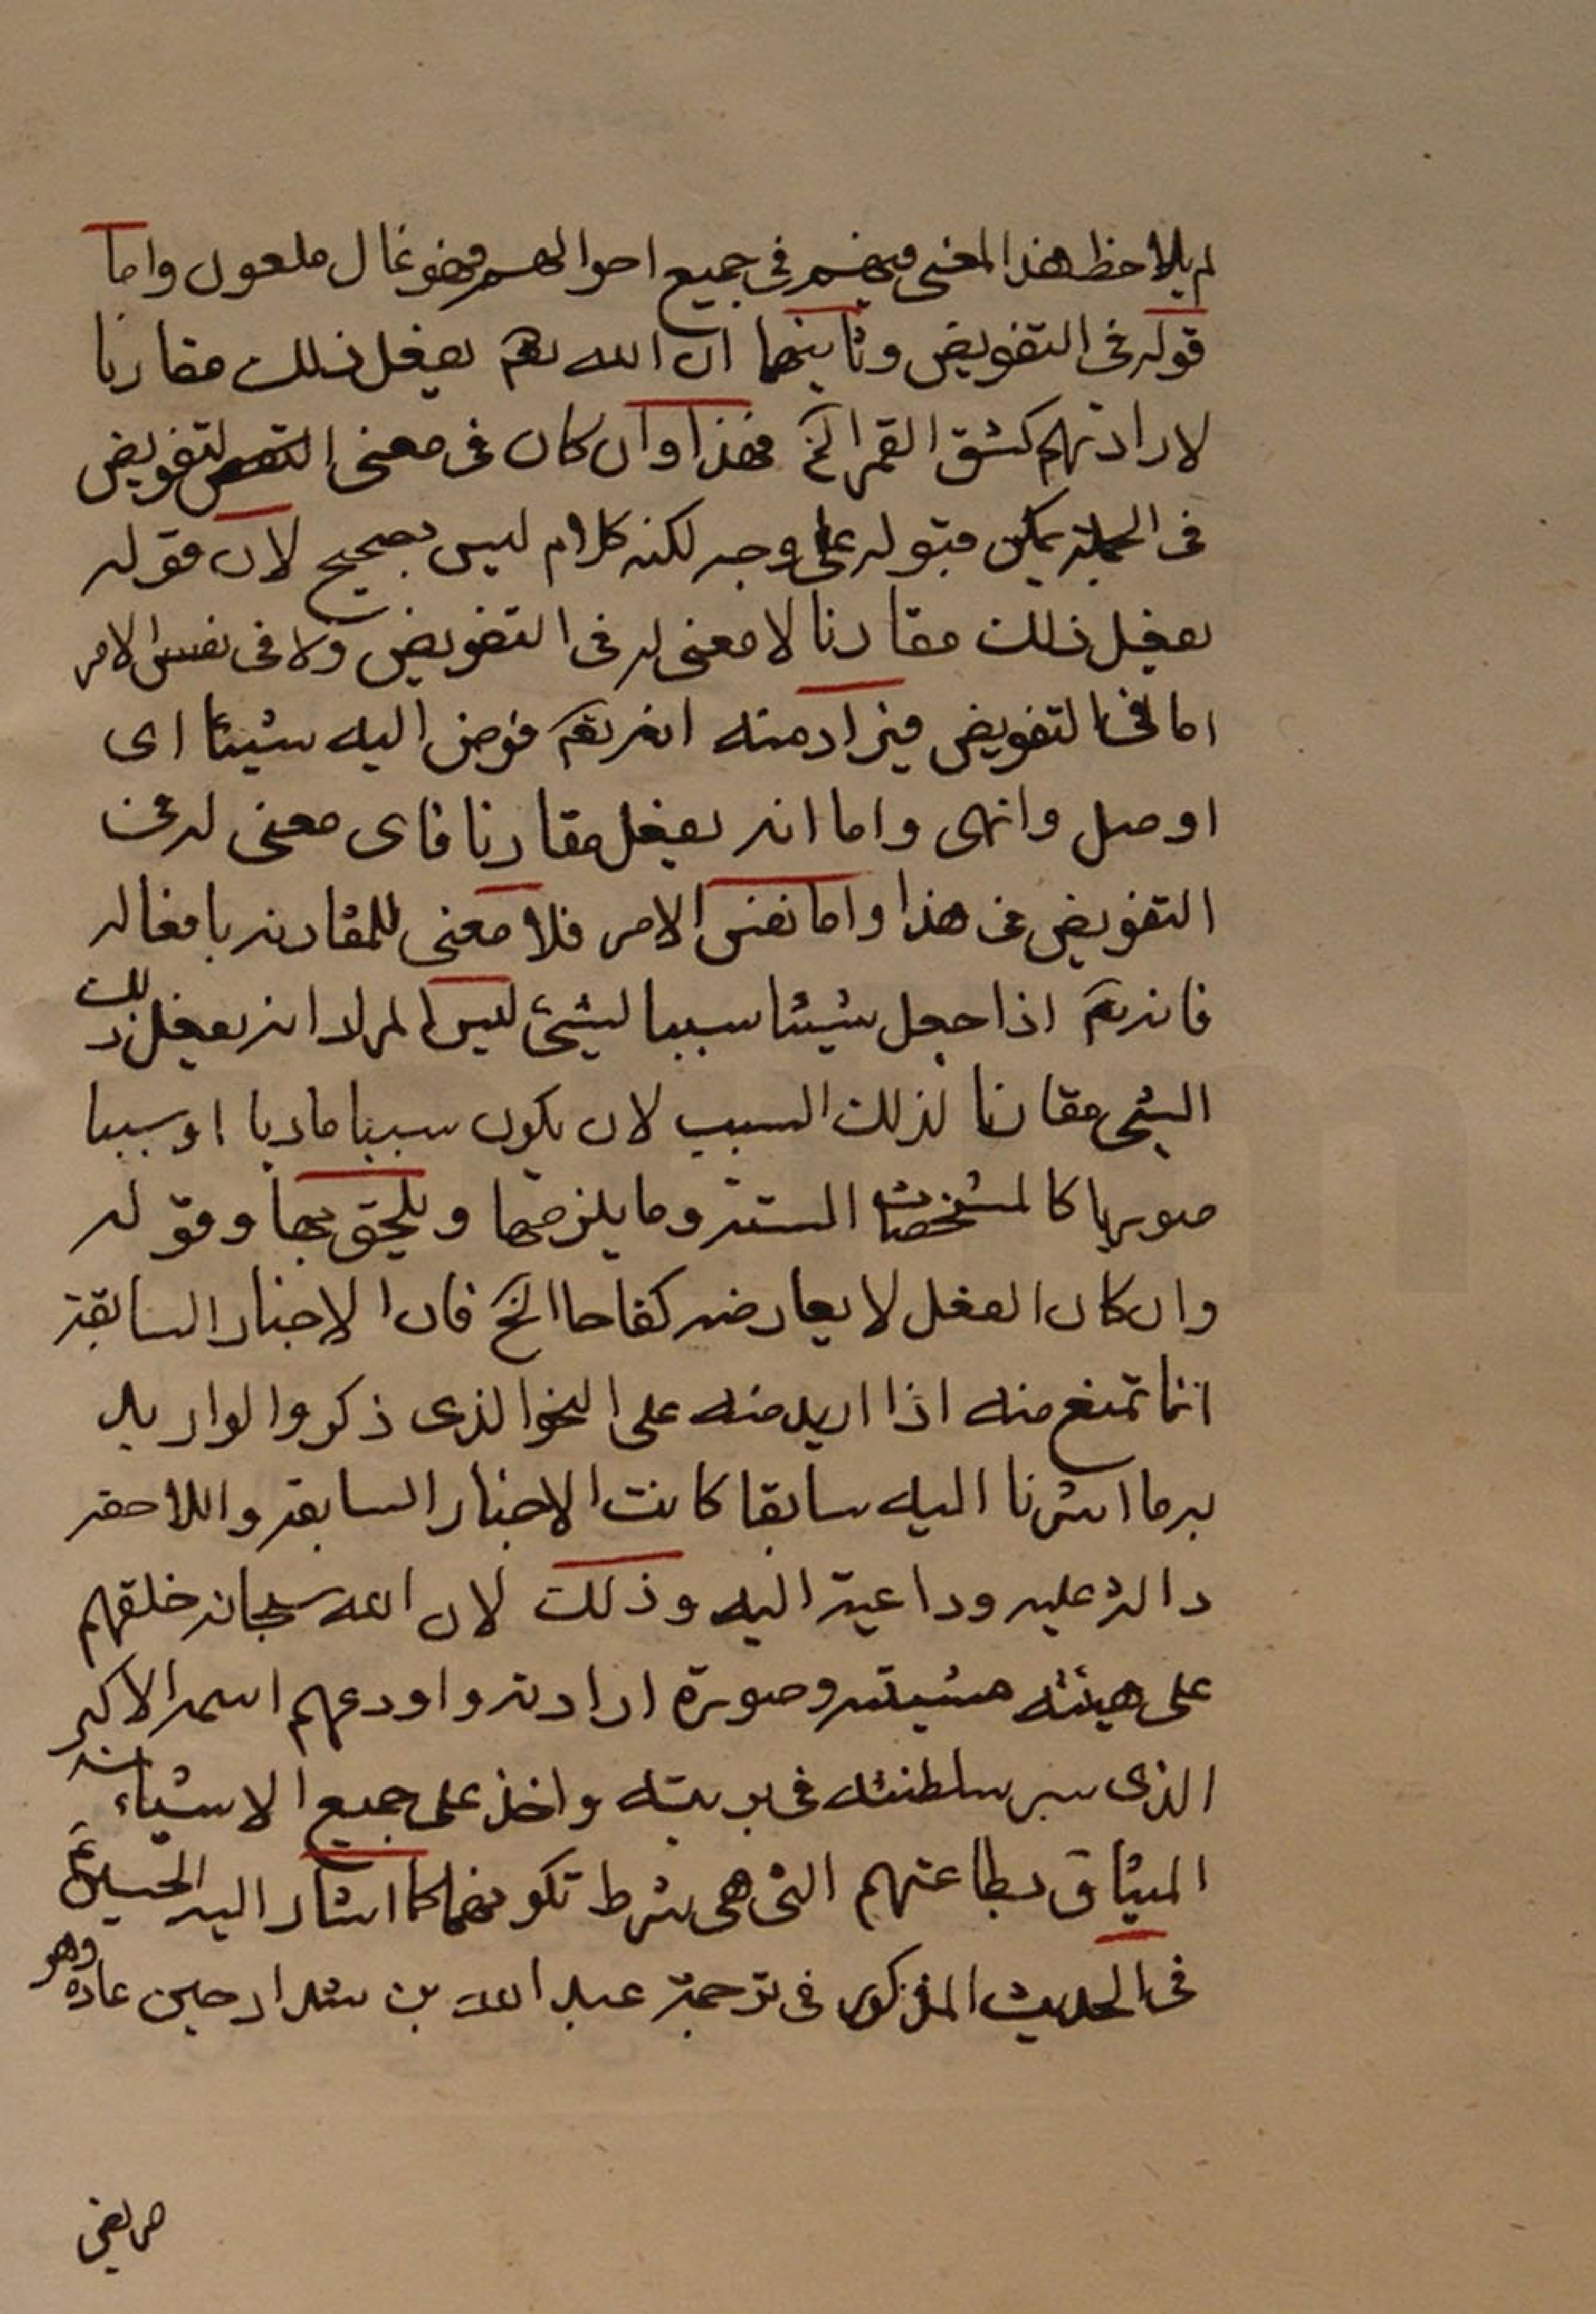 لم يلاحظ هذا المعنى فيهم في جميع احوالهم فهو غال ملعون واما
قوله في التفويض وثانيهما ان الله تعم يفعل ذلك مقارنا
لارادتهم كشق القمر الخ فهذا وان كان في معنى التفويض
في الجملة يمكن قبوله على وجه لكنه كلام ليس بصحيح لان قوله
يفعل ذلك مقارنا لا معنى له في التفويض ولا في نفس الامر
اما في التفويض فيراد منه انه تعم فوض اليه شيئا اى
اوصل وانهى واما انه يفعل مقارنا فاى معنى له في
التفويض في هذا واما نفس الامر فلا معنى للمقارنه بافعاله
فانه تعم اذا جعل شيئا سببا لشئ ليس المراد انه يفعل ذلك
الشئ مقارنا لذلك السبب لان يكون سببا ماديا او سببا
صوريا كالمشخصات الستة وما يلزمها ويلحق بها وقوله
وان كان العقل لا يعارضه كفاحا الخ فان الاخبار السابقة
انما تمنع منه اذا اريد منه على النحو الذى ذكر ولو اريد
به ما اشرنا اليه سابقا كانت الاخبار السابقة واللاحقه
دالة عليه وداعية اليه وذلك لان الله سبحانه خلقهم
على هيئة مشيته وصورة ارادته واودعهم اسمه الاكبر
الذى سر سلطنته في بريته واخذ على جميع الاشياء
الميثاق بطاعتهم التى هى شرط تكوينها كما اشار اليه الحسين ع
في الحديث المذكور في ترجمة عبد الله بن شداد حين عاده وهو
مريض